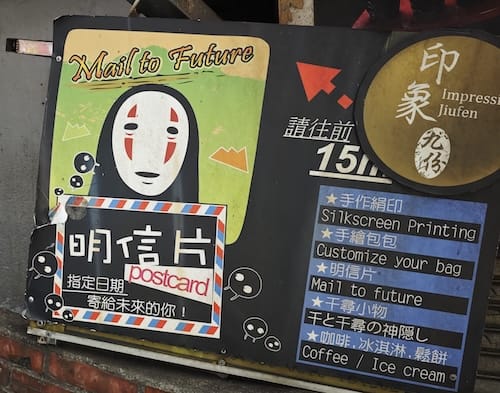 Mail to Future
明信片
postcard
指定日期
寄給未來的你！
請往前
15m
印象
Impressi
Jiufen
九份
★手作絹印
Silkscreen Printing
★手繪包包
Customize your bag
★明信片
Mail to future
★千尋小物
千と千尋の神隠し
★咖啡.冰淇淋.鬆餅
Coffee / Ice cream